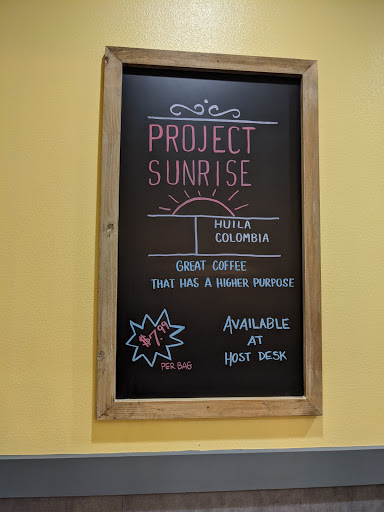 PROJECT
SUNRISE
HUILA
COLOMBIA
GREAT COFFEE
THAT HAS A HIGHER PURPOSE
$7.99
PER BAG
AVAILABLE
AT
HOST DESK